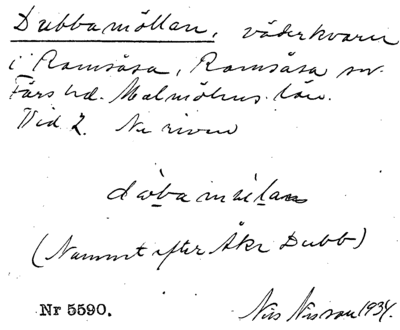 Dubbamöllan, väderkvarn
i Ramsåsa, Ramsåsa sn.
Färs hd. Malmöhus län.
Vid 2. Nu riven
(Namnet efter Åke Dubb)
Nr 5590. Nils Nilsson 1934.